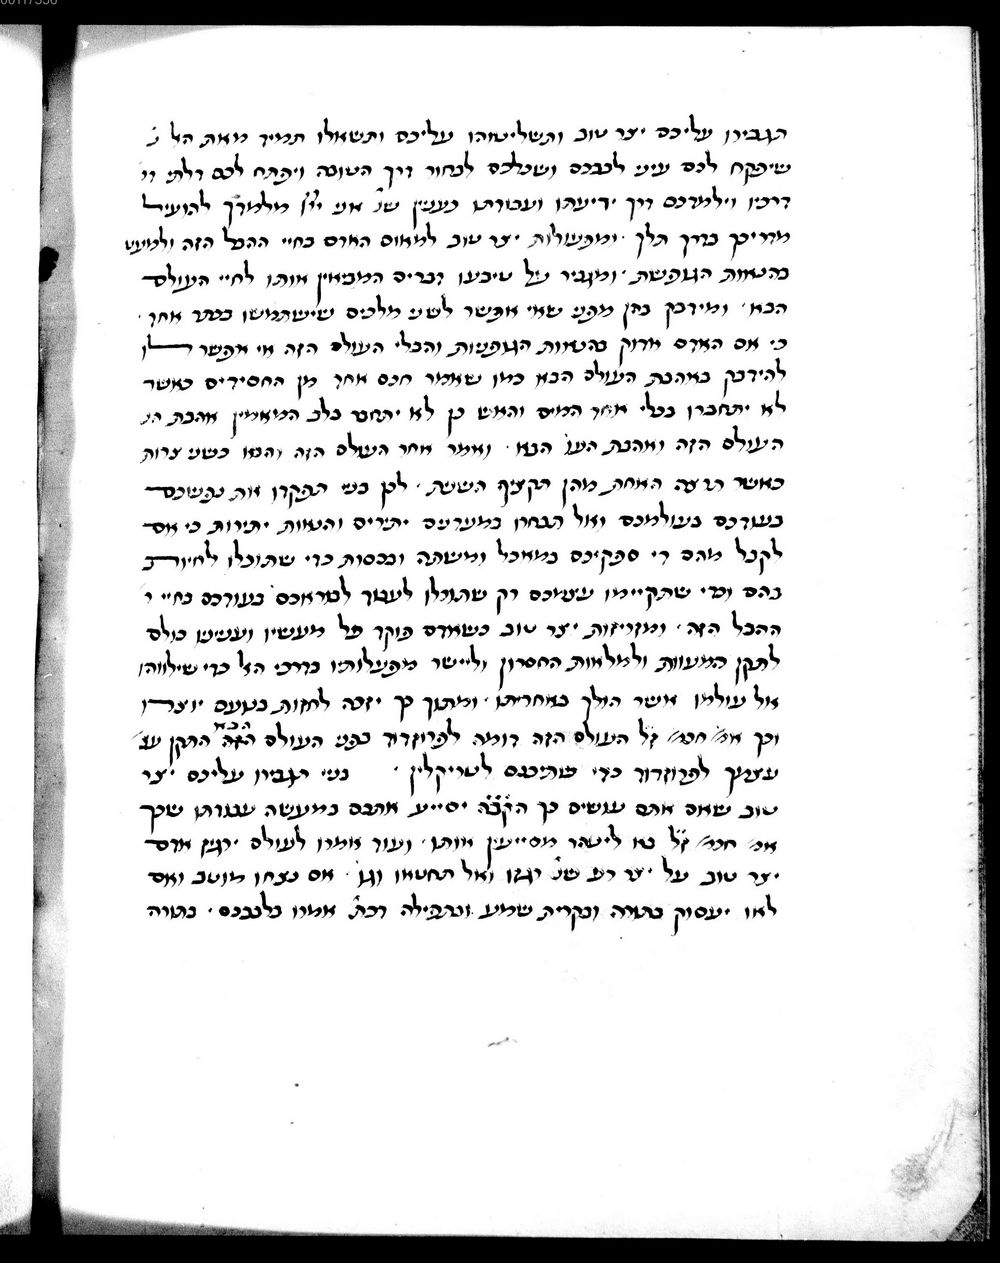 תגבירו עליכם יצר טוב ותשליטוהו עליכם ותשאלו תמיד מאת האל
שיפקח לכם עיני לבבכם ושכלכם לבחור דרך הטובה ויפתח לכם דלתי
דרכיו וילמדכם דרך ידיעתו ועבודתו כענין שנ' אני יי' מלמדך להועיל
מדריכך בדרך תלך ומפעולות יצר טוב למאוס האדם בחיי ההבל הזה ולמעט
בהנאות הגופשת ומגביר על טבעו דברים המביאין אותו לחיי העולם
הבא ומידבק בהן מפני שאי אפשר לשני מלכים שישתמשו בכתר אחד
כי אם האדם אדוק בהנאות הגופניות והבלי העולם הזה אי אפשר לו
להידבק באהבת העולם הבא כמו שאמר חכם אחד מן החסידים כאשר
לא יתחברו בכלי אחד המים והאש כן לא יתחבר בלב המאמין אהבת
העולם הזה ואהבת העו' הבא ואמר אחר העולם הזה והבא כשני צרות
כאשר תרצה האחת מהן תקציף השנית לכן בני תפקדו את נפשכם
בעודכם בעולמכם ואל תבחרו במעדנים יתירים והנאות יתירות כי אם
לקבל מהם די ספקיכם במאכל ומשתה ובכסות כדי שתוכלו לחיות
בהם וכדי שתקיימו עצמכם רק שתוכלו לעבוד לבוראכם בעודכם בחיי
ההבל הזה ומזריזות יצר טוב כשאדם פוקד על מעשיו ועניניו כולם
לתקן המעוות ולמלאות החסרון וליישר מפעלותיו בדרכי האל כדי שילווהו
אל עולמו אשר הולך באחריתו ומתוך כך יזכה לחזות בנועם יוצרו
וכך אמ' חכמ' ז"ל העולם הזה דומה לפרוזדור בפני העולם הבא התקן
עצמך לפרוזדור כדי שתיכנס לטריקלין בני הגבירו עליכם יצר
טוב שאם אתם עושים כך הקב"ה יסייע אתכם במעשה עבודתו שכך
אמ' חכמ' ז"ל בא ליטהר מסייעין אותו ועוד אמרו לעולם ירגיז אדם
יצר טוב על יצר רע שנ' רגזו ואל תחטאו וגו' אם נצחו מוטב ואם
לאו יעסוק בתורה ובקרית שמע ובתפילה דכת' אמרו בלבבכם בתורה